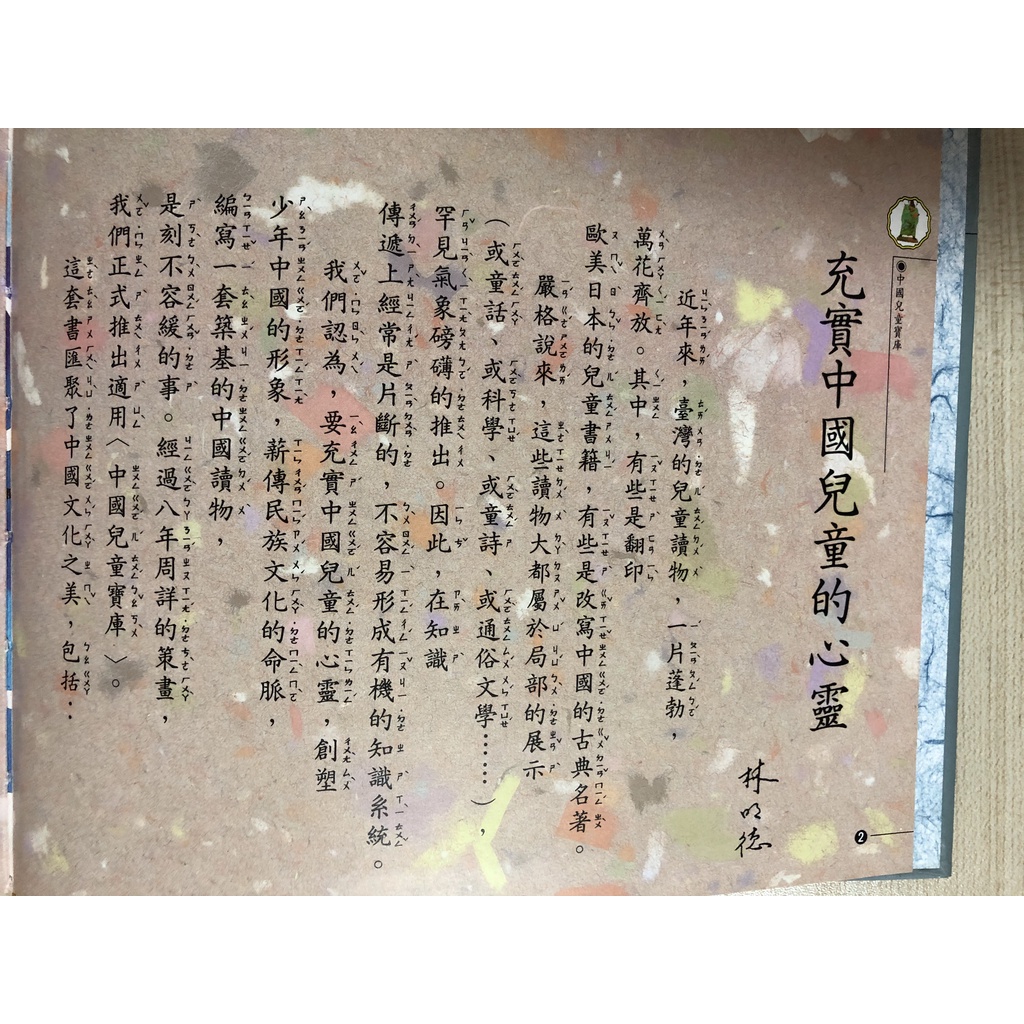 中國兒童寶庫
充實中國兒童的心靈
林明德
近年來，臺灣的兒童讀物，一片蓬勃，
萬花齊放。其中，有些是翻印
歐美日本的兒童書籍，有些是改寫中國的古典名著。
嚴格說來，這些讀物大都屬於局部的展示
（或童話、或科學、或童詩、或通俗文學……），
罕見氣象磅礡的推出。因此，在知識
傳遞上經常是片斷的，不容易形成有機的知識系統。
我們認為，要充實中國兒童的心靈，創塑
少年中國的形象，薪傳民族文化的命脈，
編寫一套築基的中國讀物，
是刻不容緩的事。經過八年周詳的策畫，
我們正式推出適用〈中國兒童寶庫〉。
這套書匯聚了中國文化之美，包括：
2